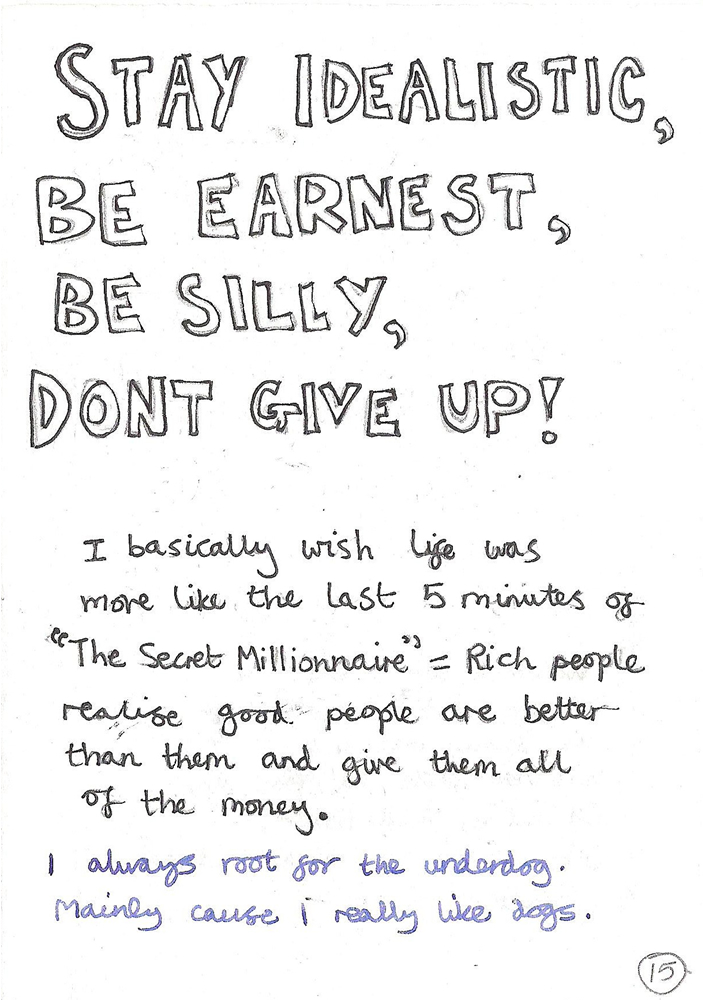 STAY IDEALISTIC,
BE EARNEST,
BE SILLY,
DONT GIVE UP!
I basically wish life was
more like the last 5 minutes of
"The Secret Millionnaire" = Rich people
realise good people are better
than them and give them all
of the money.
I always root for the underdog.
Mainly cause I really like dogs.
15